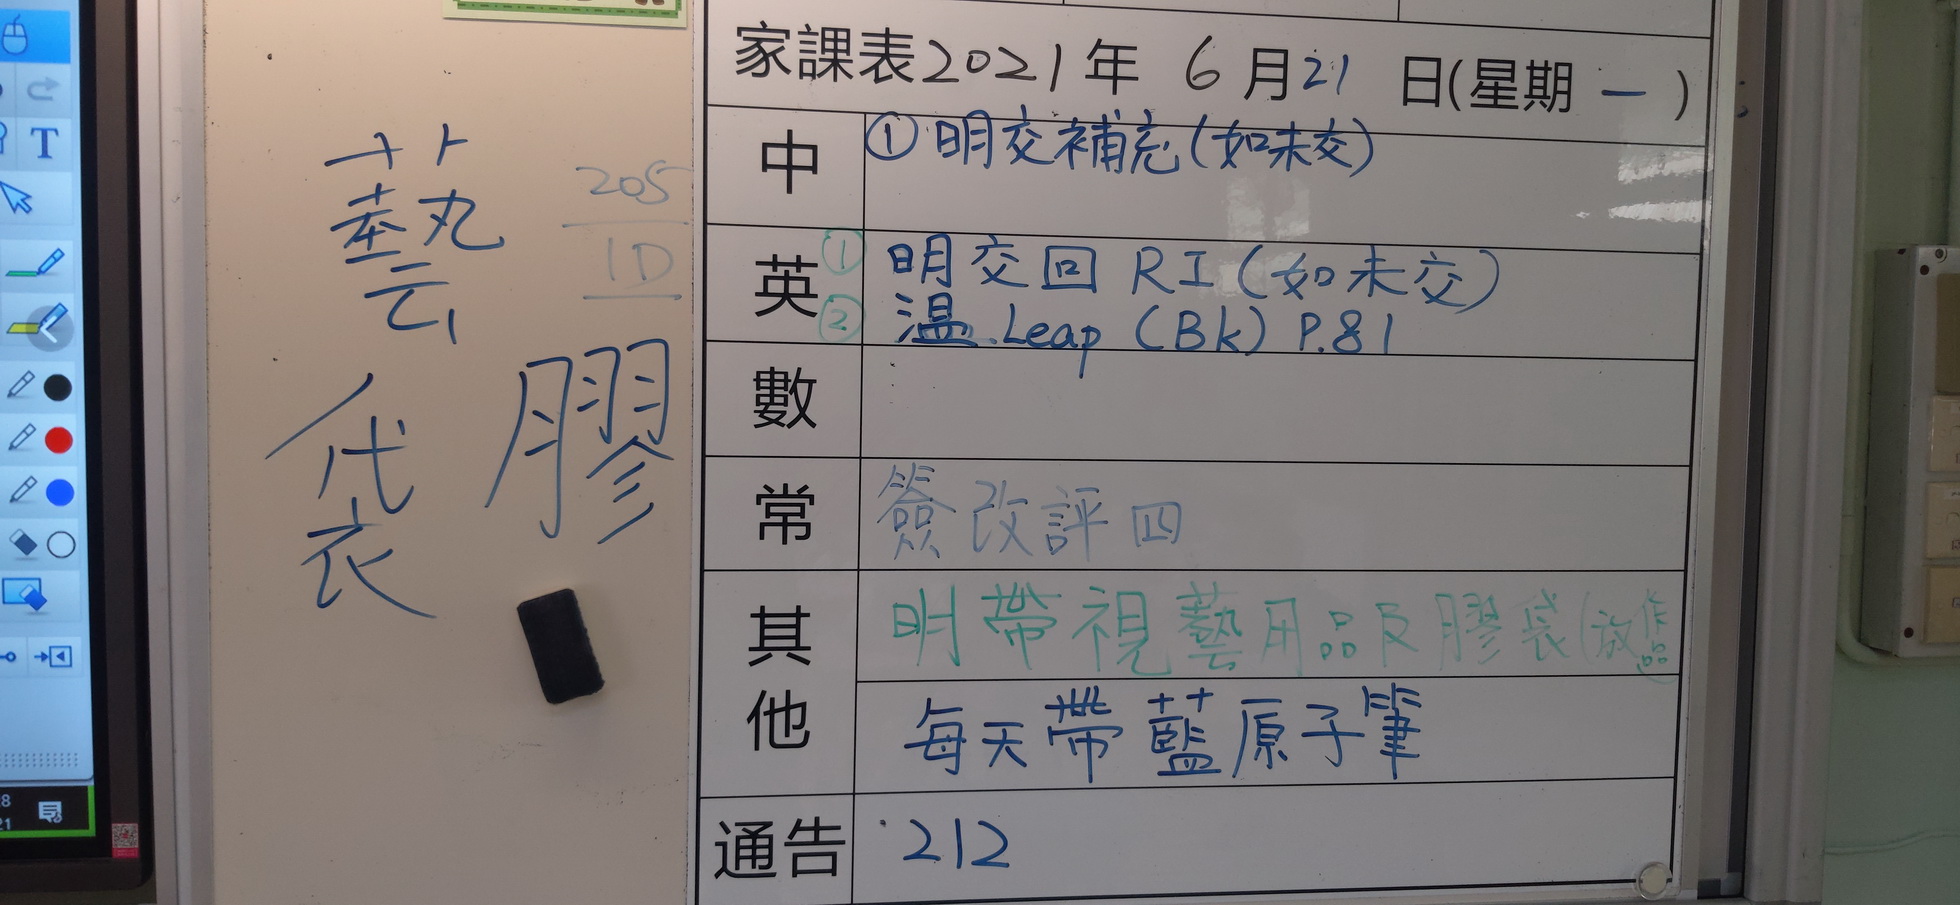 T
8
21
藝
205
1D
膠
袋
家課表2021年 6月21日(星期一)
中 ①明交補充(如未交)
英 ① 明交回RI(如未交)
② 溫.Leap (Bk) P.81
數
常 簽改評四
其他 明帶視藝用品及膠袋(放作品
每天帶藍原子筆
通告 212